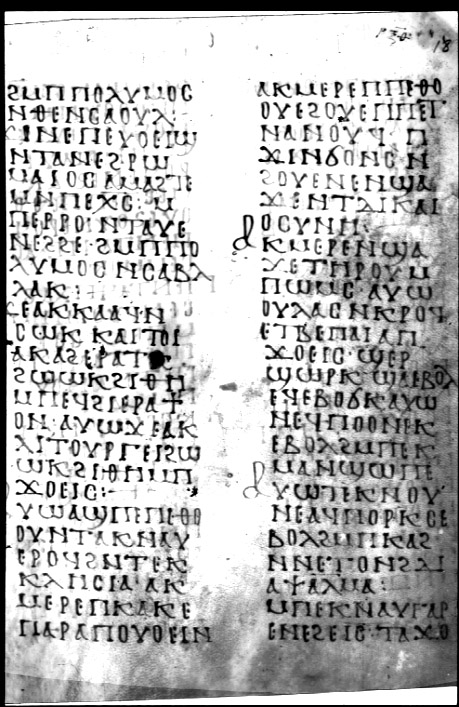 ϨⲘⲠⲠⲟⲗⲩⲙⲟⲥ
ⲛⲑⲉⲛⲥⲁⲟⲩⲗ·
ϫⲓⲛⲉⲡⲉⲩⲟⲉⲓϣ
ⲛⲧⲁⲛⲉϩⲣⲱ
ⲙⲁⲓⲟⲥ ⲁⲙⲁϩⲧⲉ
ⲙⲛⲡⲉⲭⲥ· ⲙ
ⲡⲉⲣⲣⲟ· ⲛⲧⲁⲩⲉ
ⲛⲉϩϩⲉ· ϩⲙⲡⲡⲟ
ⲗⲩⲙⲟⲥ ⲛⲥⲁⲃⲗ
ⲗⲁⲕ:
ⲉⲁⲕⲕⲁⲁϥⲛ
ⲥⲱⲕ ⲕⲁⲓⲧⲟⲓ
ⲁⲕⲁϩⲉⲣⲁⲧ
ϩⲱⲱⲕϩⲓⲑⲏ
ⲙⲡⲉϥϩⲓⲉⲣⲁϯ
ⲟⲛ· ⲁⲩⲱϫⲉⲁⲕ
ⲗⲓⲧⲟⲩⲣⲅⲉⲓϩⲱ
ⲱⲕϩⲓⲑⲏⲙⲡ
ϫⲟⲉⲓⲥ:
ⲩⲱⲁϣⲡⲉⲡⲉⲑⲟ
ⲟⲩⲛⲧⲁⲕⲛⲁⲩ
ⲉⲣⲟϥϩⲛⲧⲉⲕ
ⲕⲗⲏⲥⲓⲁ· ⲁⲕ
ⲙⲉⲣⲉⲡⲕⲁⲕⲉ
ⲡⲁⲣⲁⲡⲟⲩⲟⲉⲓⲛ
ⲁⲕⲙⲉⲣⲉⲡⲡⲉⲑⲟ
ⲟⲩⲉϩⲟⲩⲉⲡⲡⲉⲧ
ⲛⲁⲛⲟⲩϥ· ⲡ
ϫⲓⲛϭⲟⲛⲥ ⲛ
ϩⲟⲩⲉⲛⲉⲛϣⲁ
ϫⲉⲛⲧⲇⲓⲕⲁⲓ
ⲟⲥⲩⲛⲏ:
ⲁⲕⲙⲉⲣⲉⲛϣⲁ
ϫⲉⲧⲏⲣⲟⲩⲙ
ⲡⲱⲙⲥ· ⲁⲩⲱ
ⲟⲩⲗⲁⲥⲛⲕⲣⲟϥ
ⲉⲧⲃⲉⲡⲁⲓⲁⲡ
ϫⲟⲉⲓⲥ ϣⲉⲣ
ϣⲱⲣⲕ ϣⲁⲉⲃⲟⲗ
ⲉⲛⲉⲃⲟϭⲕⲁⲩⲱ
ⲛⲉϥⲡⲟⲟⲛⲉⲕ
ⲉⲃⲟⲗϩⲙⲡⲉⲕ
ⲙⲁⲛϣⲱⲡⲉ
ⲁⲩⲱⲡⲉⲕⲛⲟⲩ
ⲛⲉⲁϥⲡⲟⲣⲕϥⲉ
ⲃⲟⲗϩⲙⲡⲕⲁϩ
ⲛⲛⲉⲧⲟⲛϩⲇⲓ
ⲁⲯⲁⲗⲙⲁ:
ⲙⲡⲉⲕⲛⲁⲩⲅⲁⲣ
ⲉⲛⲉϩⲉⲓⲥ· ⲧⲁϫⲟ